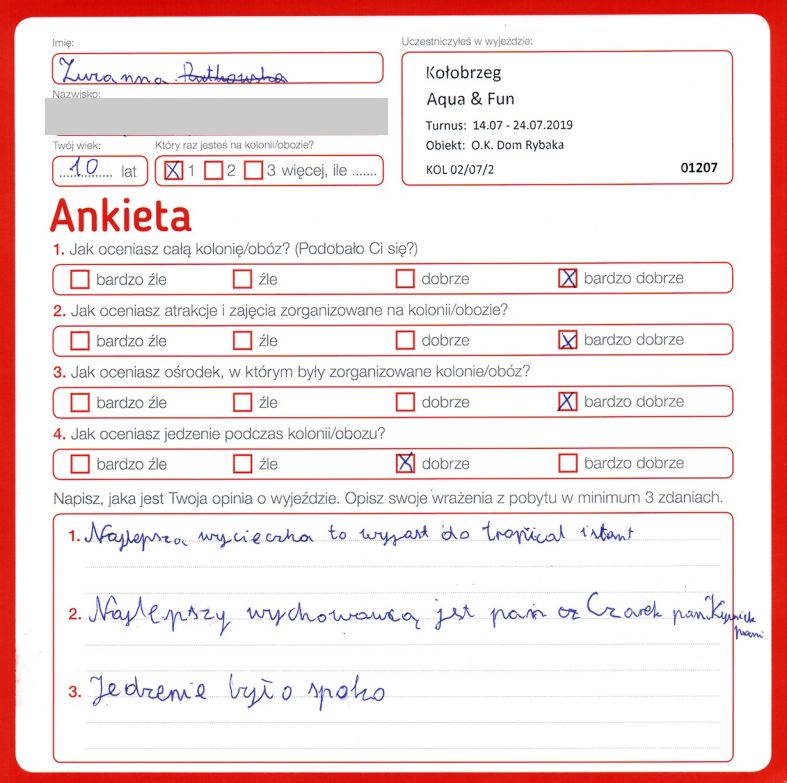 Imię:
Uczestniczyłeś w wyjeździe:
Zuzanna Rutkowska
Kołobrzeg
Nazwisko:
Aqua & Fun
Turnus: 14.07 - 24.07.2019
Twój wiek:
Który raz jesteś na kolonii/obozie?
Obiekt: O.K. Dom Rybaka
10 lat
X 1 2 3 więcej, ile .......
KOL 02/07/2 01207
Ankieta
1. Jak oceniasz całą kolonię/obóz? (Podobało Ci się?)
bardzo źle źle dobrze X bardzo dobrze
2. Jak oceniasz atrakcje i zajęcia zorganizowane na kolonii/obozie?
bardzo źle źle dobrze X bardzo dobrze
3. Jak oceniasz ośrodek, w którym były zorganizowane kolonie/obóz?
bardzo źle źle dobrze X bardzo dobrze
4. Jak oceniasz jedzenie podczas kolonii/obozu?
bardzo źle źle X dobrze bardzo dobrze
Napisz, jaka jest Twoja opinia o wyjeździe. Opisz swoje wrażenia z pobytu w minimum 3 zdaniach.
1. Najlepsza wycieczka to wyjast do tropical istant
2. Najlepszy wychowawcą jest pan Czarek pan
pani
3. Jedzenie było spoko